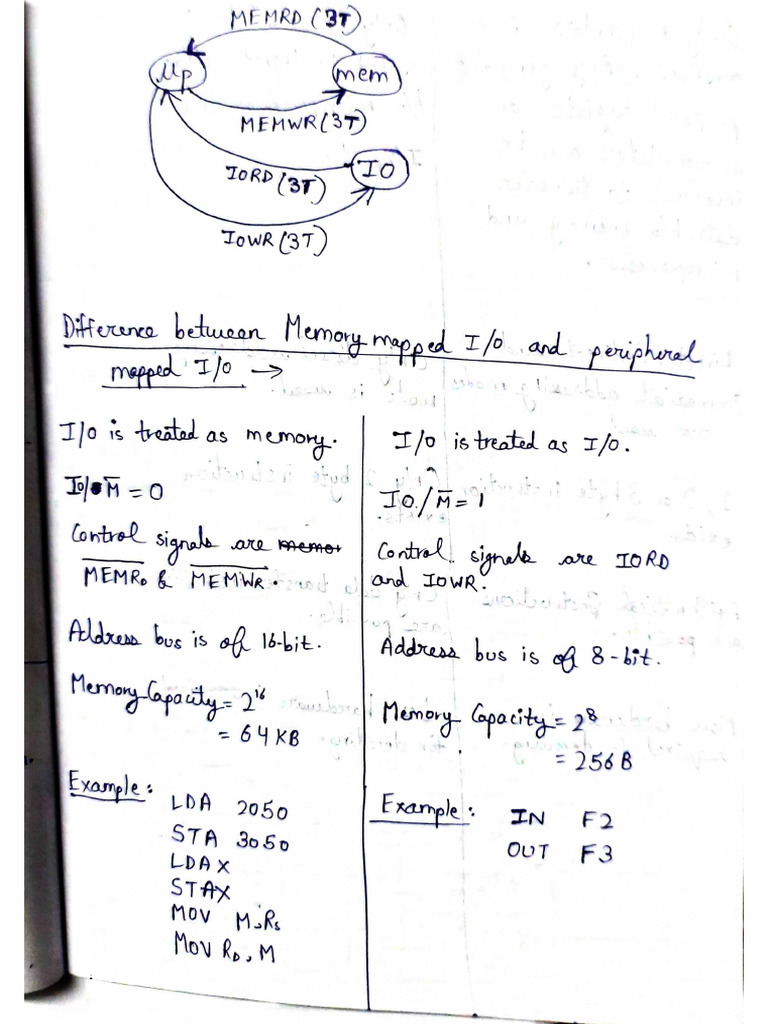 MEMRD (3T)
μp
mem
MEMWR (3T)
IORD (3T)
IO
IOWR (3T)
Difference between Memory mapped I/O and peripheral
mapped I/O →
I/O is treated as memory.
IO/M̅ = 0
Control signals are memor
M̅E̅M̅R̅D̅ & M̅E̅M̅W̅R̅.
Address bus is of 16-bit.
Memory Capacity = 2¹⁶
= 64KB
Example:
LDA 2050
STA 3050
LDAX
STAX
MOV M,Rs
MOV RD, M
I/O is treated as I/O.
IO/M̅ = 1
Control signals are IORD
and IOWR.
Address bus is of 8-bit.
Memory Capacity = 2⁸
= 256B
Example:
IN F2
OUT F3